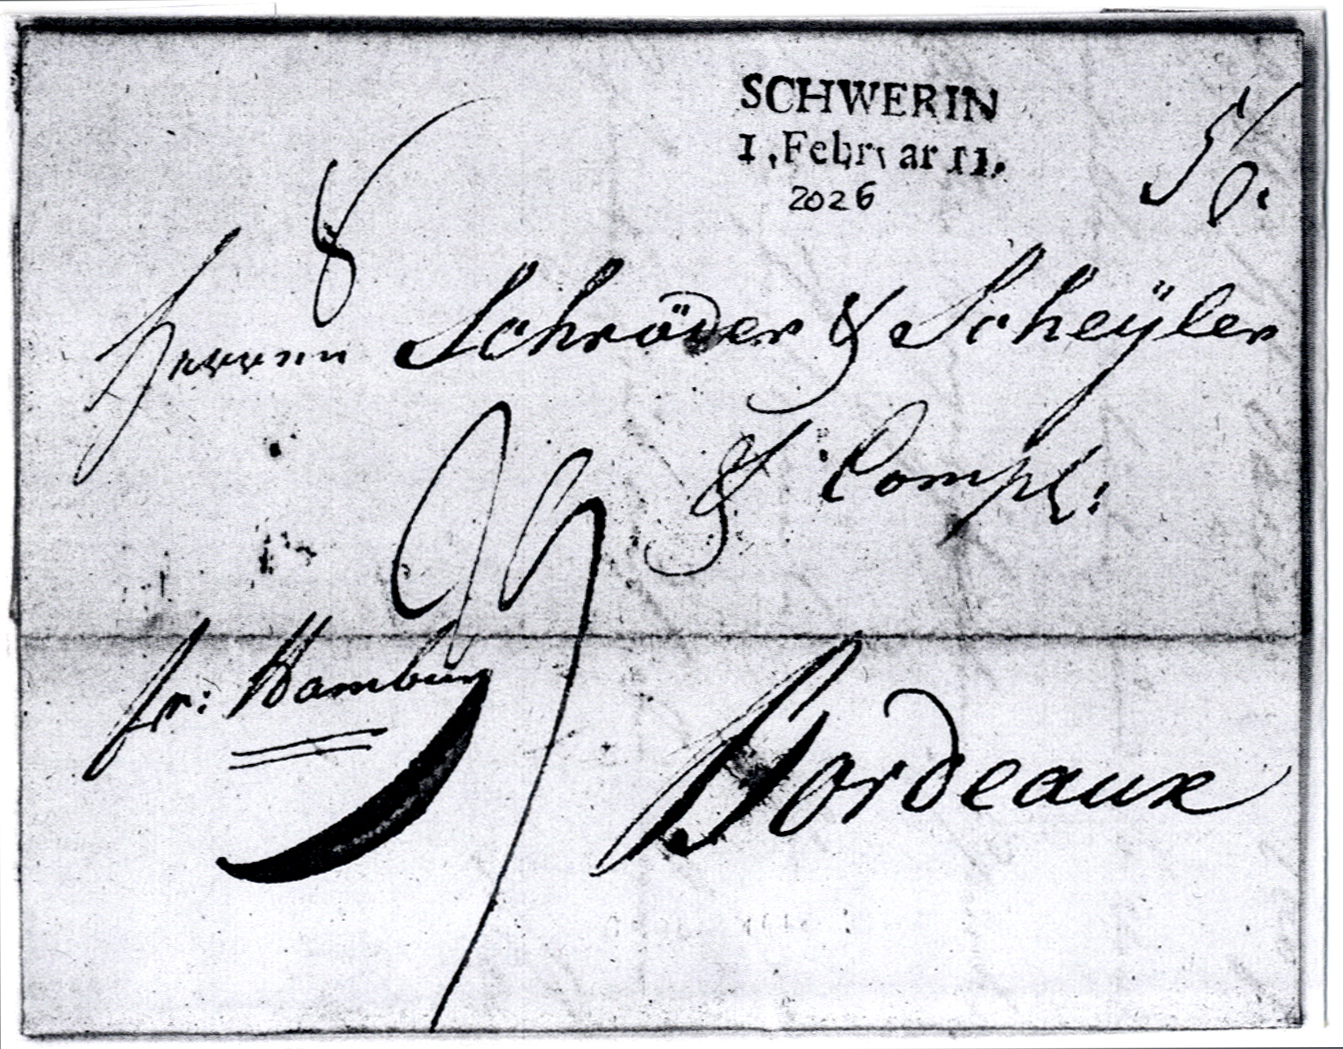 SCHWERIN
1. Februar 11.
2026
8
Herren Schröder & Scheÿler
& Comp:
99
fr: Hamburg
Bordeaux